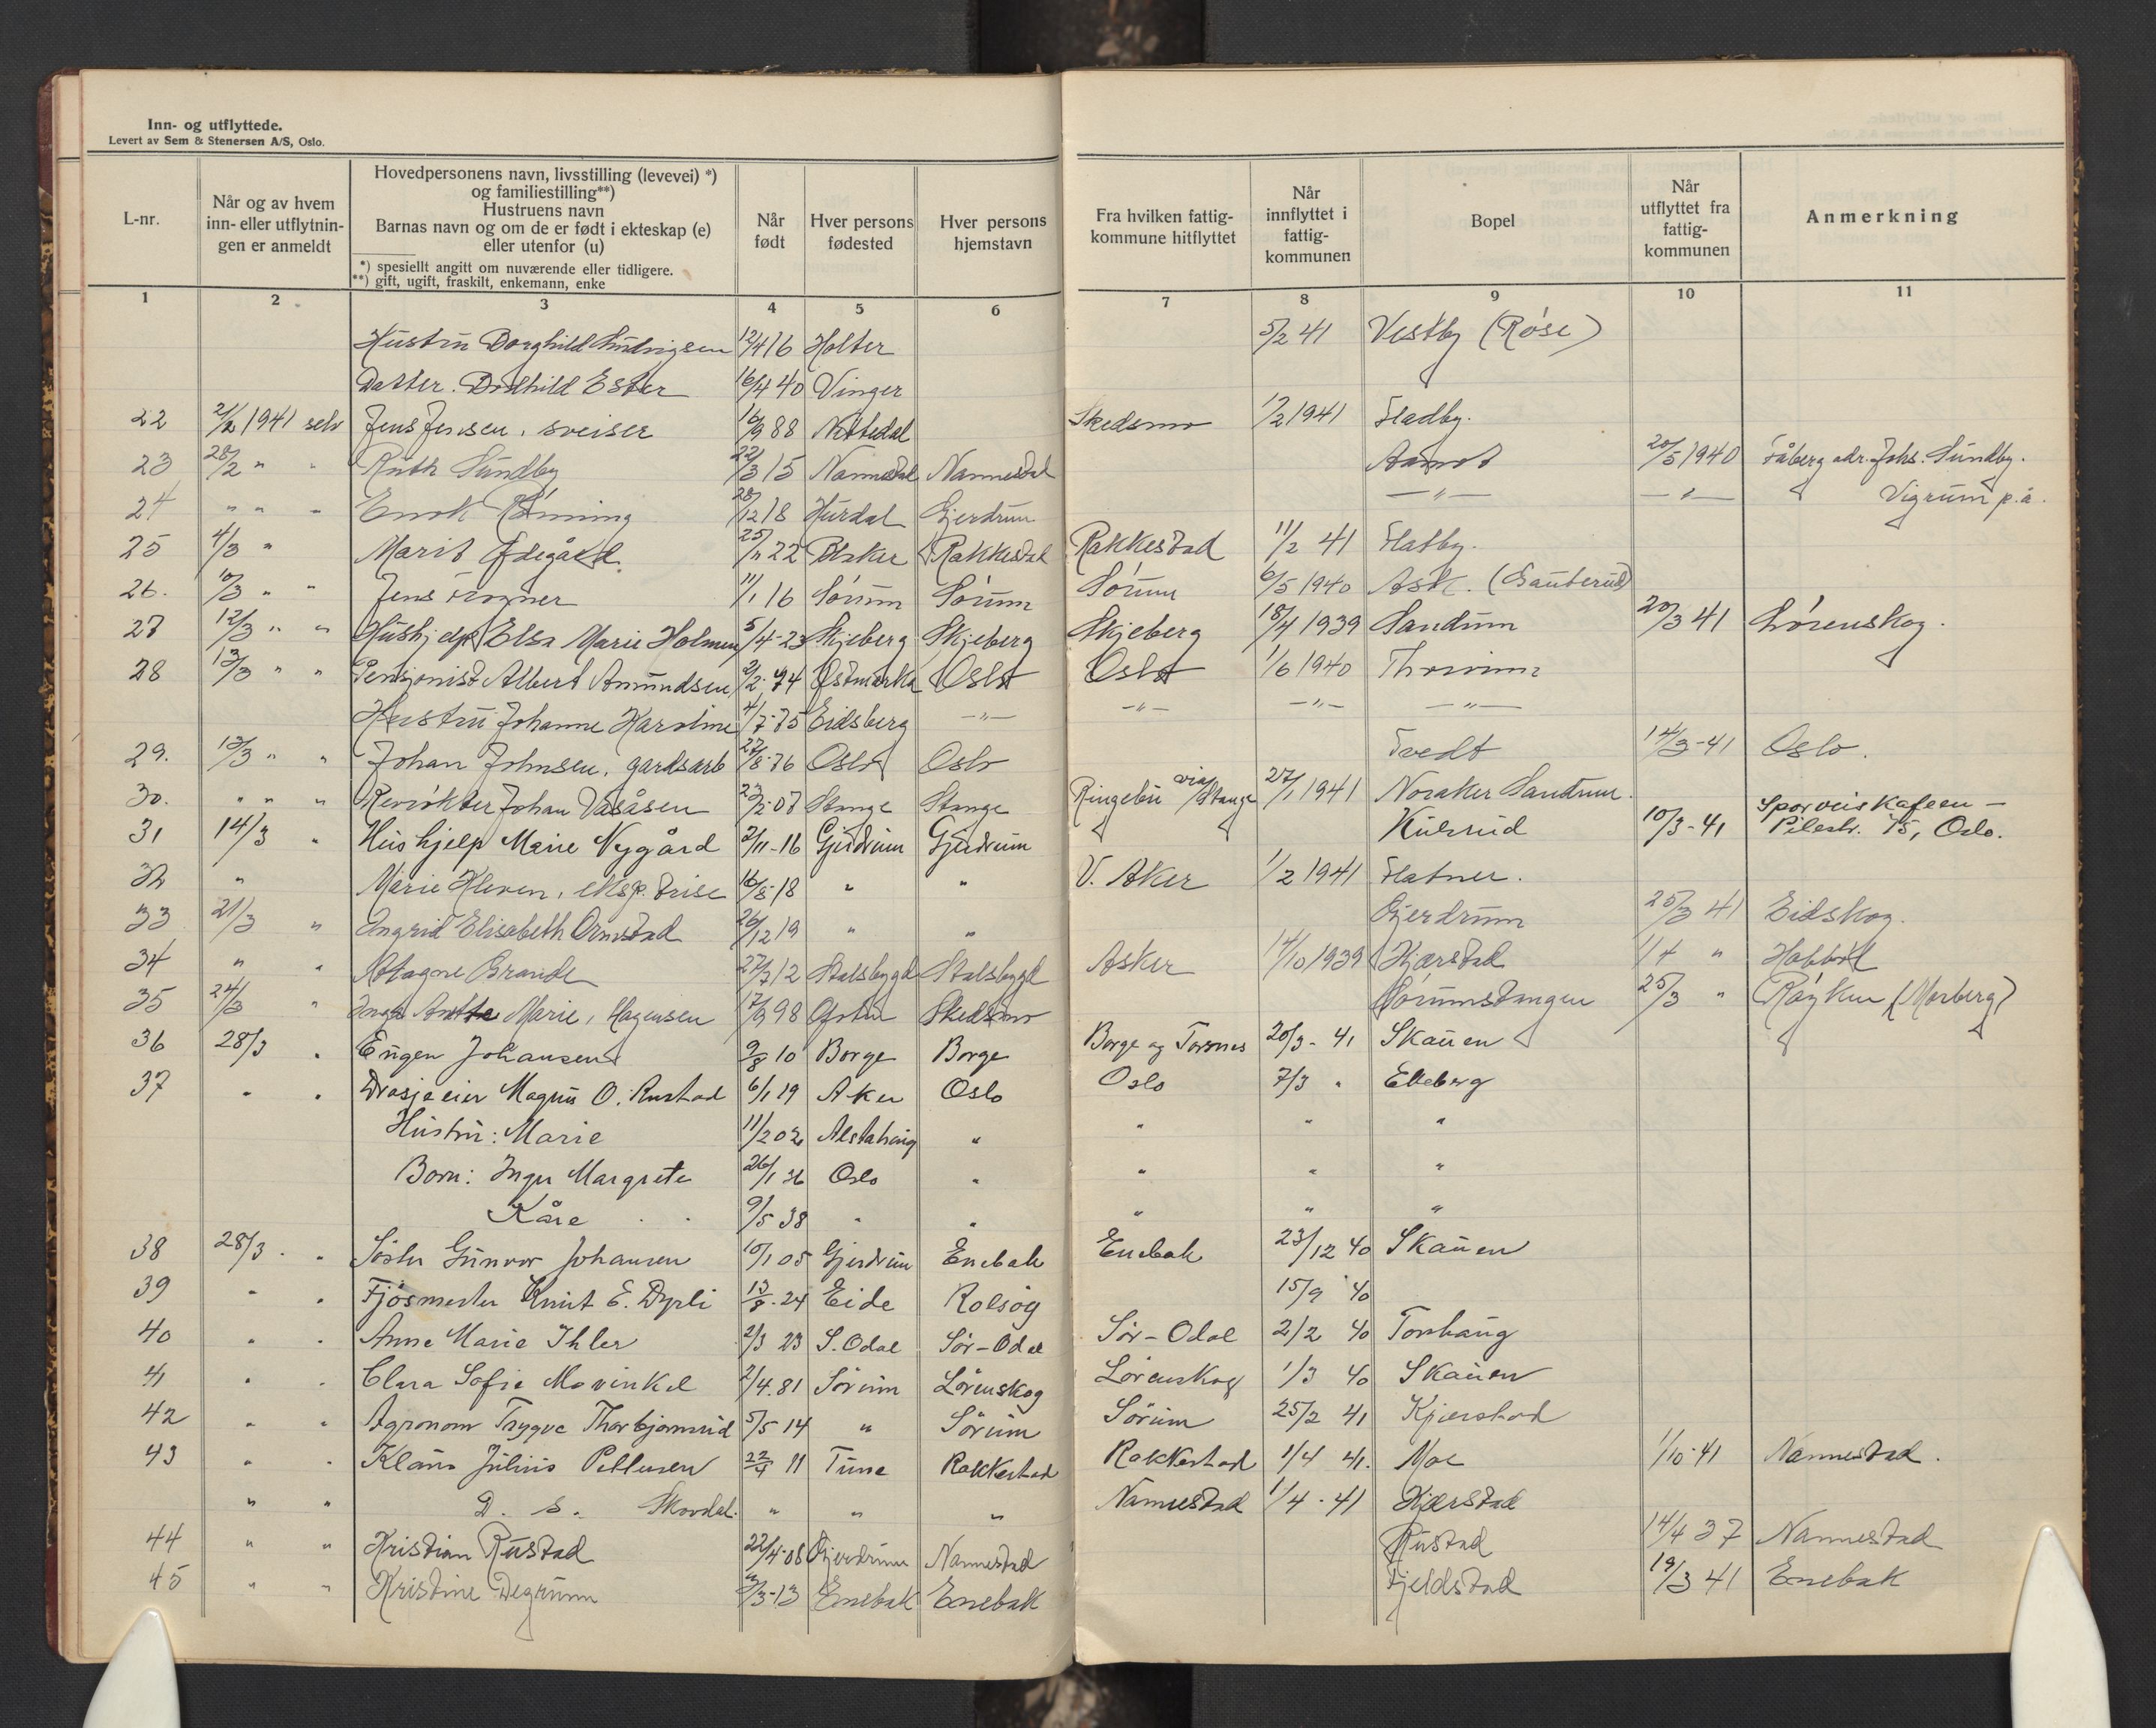 Inn- og utflyttede.
Levert av Sem & Stenersen A/S, Oslo.
L-nr.
Når og av hvem inn- eller utflytnin- gen er anmeldt
Hovedpersonens navn, livsstilling (levevei) *)
og familiestilling**)
Hustruens navn
Barnas navn og om de er født i ekteskap (e)
eller utenfor (u)
*) spesiellt angitt om nuværende eller tidligere.
**) gift, ugift, fraskilt, enkemann, enke
Når født
Hver persons fødested
Hver persons hjemstavn
Fra hvilken fattig- kommune hitflyttet
Når innflyttet i fattig- kommunen
Bopel
Når utflyttet fra fattig- kommunen
Anmerkning
1 2 3 4 5 6 7 8 9 10 11
Hustru Borghild Ludvigsen 12/4 16 Holter 5/2 41 Vestby (Røse)
Datter. Bodhild Ester 16/4 40 Vinger
22 1941 selv Jens Jensen, sveiser 16/9 88 Nittedal Skedsmo 1/2 1941 Fladby.
23 28/2 " " Ruth Sundby 22/3 15 Nannestad Nannestad Aamot 20/5 1940 Fåberg adr. Johs. Sundby.
24 " " " Enok Rønning 28/12 18 Hurdal Gjerdrum — " — — " — Vigrum p.å.
25 4/3 " Marit Ødegård 22 Blaker Rakkestad Rakkestad 11/2 41 Flatby.
26. 10/3 " " Jens 11/1 16 Sørum Sørum Sørum 6/5 1940 Ask. (Gauterud)
27 12/3 " " Hushjelp Elsa Marie Holmen 5/4-23 Skjeberg Skjeberg Skjeberg 18/4 1939 Sandum 20/3 41 Lørenskog.
28 13/3 " " Pensjonist Albert Amundsen 2/2-74 Østmarka Oslo Oslo 1/6 1940
Hustru Johanne Karoline 4/7-75 Eidsberg — " — — " — — " — — " —
29. 13/3 " " Johan Johnsen, gardsarb 27/8-76 Oslo Oslo Tvedt 14/3-41 Oslo.
30. " " " Røkter Johan Vasåsen 07 Stange Stange Ringebu via Stange 27/1 1941 Noraker Sandum.
31 14/3 " Hushjelp Marie Nygård 2/11-16 Gjerdrum Gjerdrum Kulsrud 10/3-41 Sporveiskafeen –
Pilestr. 75, Oslo.
32 " Marie Kleven, eksp. trise 16/8-18 " " V. Aker 1/2 1941 Flatner.
33 21/3 " Ingrid Elisabeth Ornstad 26/12 19 " " Gjerdrum 25/3 41 Eidskog.
34 " " Magne Brande 27/7 12 Stalsbygd Stalsbygd Asker 14/10 1939 Kjærstad 1/4 " Hobbøl
35 24/3 " Inga Antte Marie, Hagensen 17/9 98 Skedsmo Sørumstangen 25/3 " Røyken (Morberg)
36 28/3 " Eugen Johansen 9/8 10 Borge Borge Borge og Torsnes 20/3-41 Skauen
37 " " Drosjeeier Magnus O. Rustad 6/1 19 Aker Oslo Oslo 7/3 " Elleberg
Hustru: Marie 11/2 02 Alstahaug " " " "
Born: Inger Margrete 26/1 36 Oslo " " " "
Kåre 9/5 38 " " " " "
38 28/3 " " Søster Gunvor Johansen 10/1 05 Gjerdrum Enebak Enebak 23/12 40 Skauen
39 " " Fjøsmester Knut E. Dyrli 13/8-24 Eide Rolsøg 15/9 40
40 " " Anne Marie Ihler 2/3 23 S. Odal Sør-Odal Sør-Odal 2/2 40 Tonhaug
41 " " Clara Sofie Movinkel 2/4.81 Sørum Lørenskog Lørenskog 1/3 40 Skauen
42 " " Agronom Trygve Thorbjørnsrud 5/5 14 " Sørum Sørum 25/2 41 Kjærstad
43 " " Klaus Julius Pettersen 22/4 11 Tune Rakkestad Rakkestad 1/4 41. Moe 1/10-41 Nannestad.
" " D. s. Skovdal. " " " Nannestad 1/4-41 Kjærstad
44 " " Kristian Rustad 22/4-08 Gjerdrum Nannestad Rustad 14/4 37 Nannestad
45 " " Kristine Degrum 3-13 Enebak Enebak Fjeldstad 19/3 41 Enebak